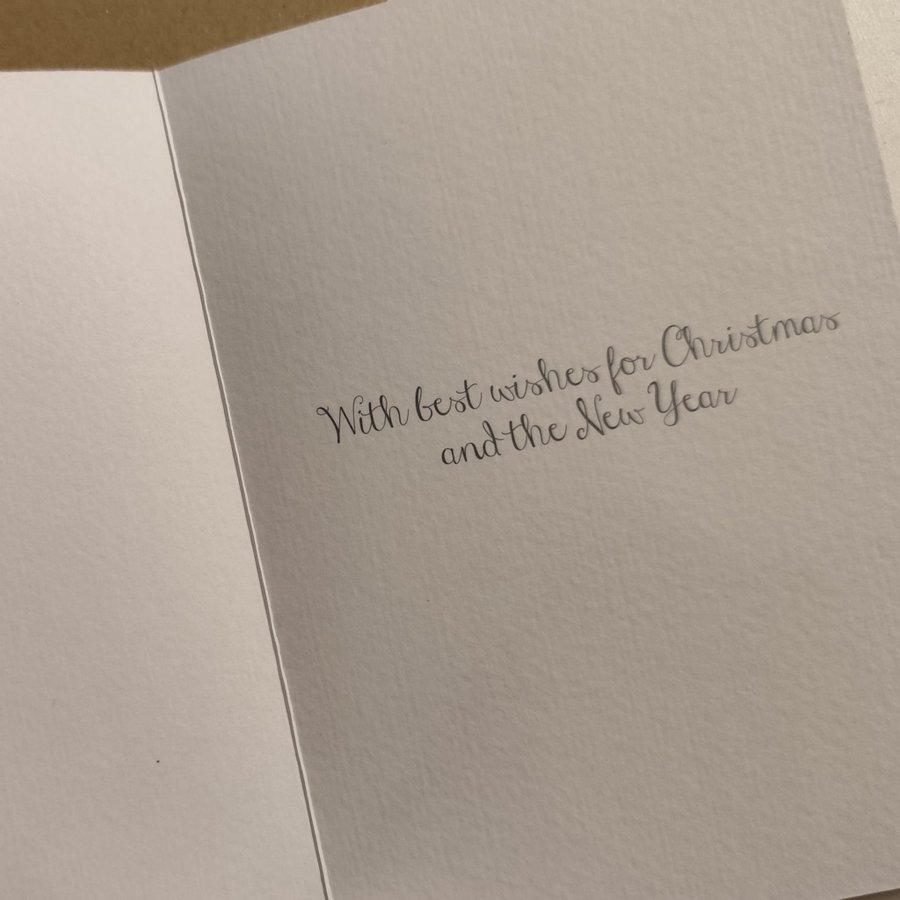 With best wishes for Christmas
and the New Year